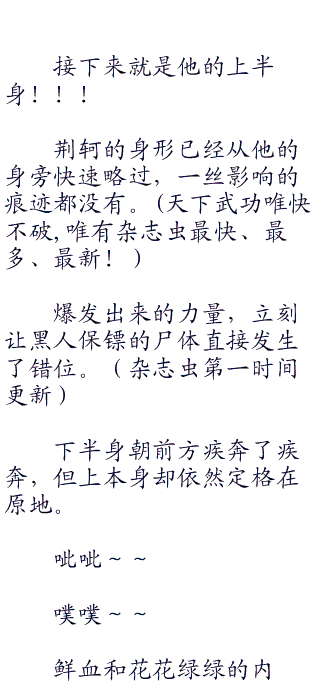 接下来就是他的上半
身！！！
荆轲的身形已经从他的
身旁快速略过，一丝影响的
痕迹都没有。(天下武功唯快
不破,唯有杂志虫最快、最
多、最新！)
爆发出来的力量，立刻
让黑人保镖的尸体直接发生
了错位。（杂志虫第一时间
更新）
下半身朝前方疾奔了疾
奔，但上本身却依然定格在
原地。
呲呲～～
噗噗～～
鲜血和花花绿绿的内